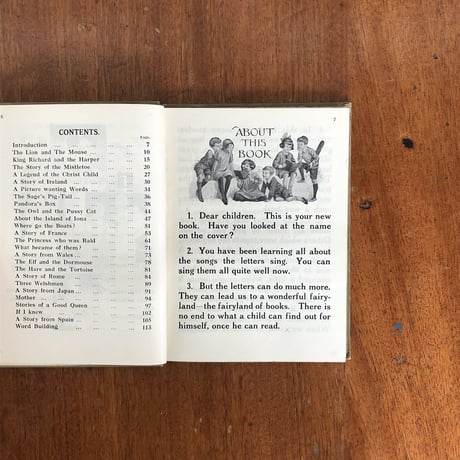 6
CONTENTS.
PAGE
Introduction ... ... ... 7
The Lion and The Mouse ... ... 10
King Richard and the Harper ... 15
The Story of the Mistletoe ... 20
A Legend of the Christ Child ... 27
A Story of Ireland ... ... 30
A Picture wanting Words ... ... 34
The Sage's Pig-Tail ... ... 36
Pandora's Box ... ... 38
The Owl and the Pussy Cat ... 44
About the Island of Iona ... ... 47
A Story of France ... ... 53
Where go the Boats? ... ... 61
The Princess who was Bald ... 62
What became of them? ... ... 71
A Story from Wales ... ... 73
The Elf and the Dormouse ... 78
The Hare and the Tortoise ... 81
A Story of Rome ... ... 84
Three Welshmen ... ... 89
A Story from Japan ... ... 91
Mother ... ... ... 94
Stories of a Good Queen ... ... 97
If I knew ... ... ... 102
A Story from Spain ... ... 105
Word Building ... ... ... 113
7
ABOUT
THIS
BOOK
1. Dear children. This is your new
book. Have you looked at the name
on the cover?
2. You have been learning all about
the songs the letters sing. You can
sing them all quite well now.
3. But the letters can do much more.
They can lead us to a wonderful fairy-
land—the fairyland of books. There is
no end to what a child can find out for
himself, once he can read.